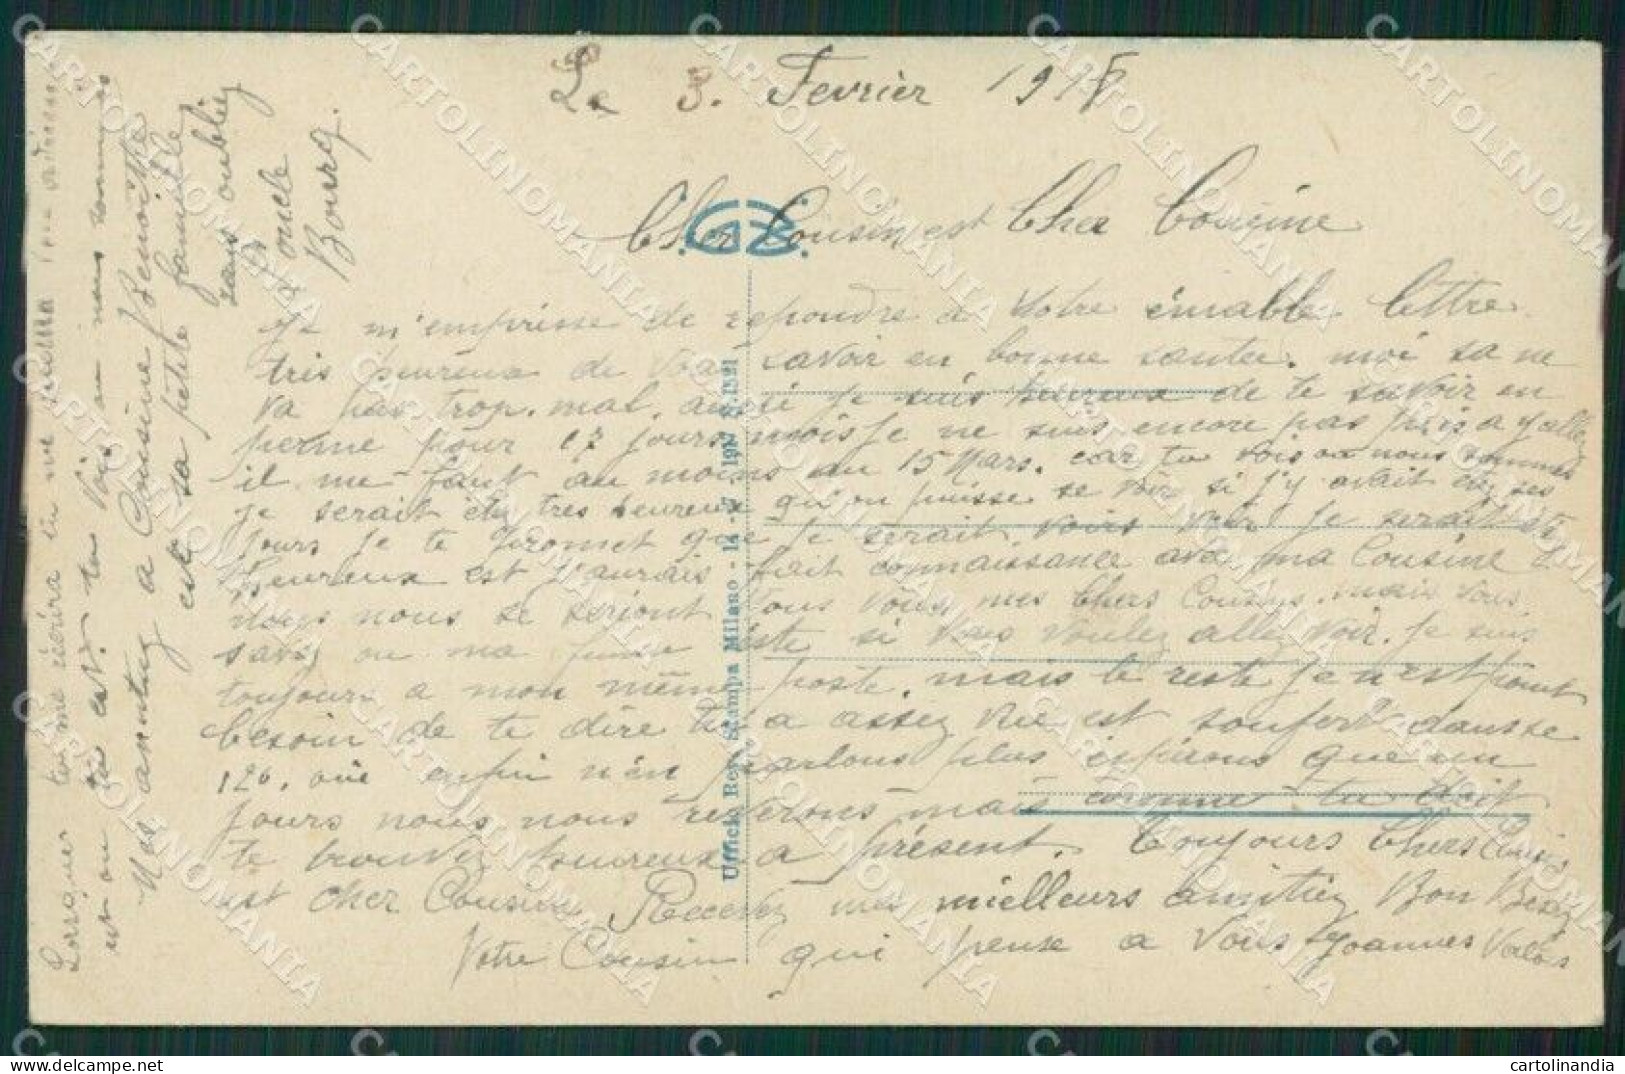 Le 3. Fevrièr 1918
Cher Cousin est Cher Cousine
Je m'emprèse de repondre a Votre émable lettre
tris heureux de Vous savoir en bonne santee. moi sa ne
va pas trop. mal. aussi je suis heureux de te savoir en
perme pour 17 jours mois je ne suis encore pas pres a y allez
il me faut au moins au 15 Mars. car tu vois ou nous sommes
je serait été tres heureux qu'on puisse se voir si j'y avait été ses
jours je te promet que je serait voirs je serait été
heureux est j'aurais fait connaissance avec ma Cousine
nous nous se seriont tous vous mes Chers Cousins. mais vous
savez ou ma femme éste si Vous Voulez allez voir. Je suis
toujours a mon même poste. mais le reste je n'est point
besoin de te dire tu a assez vue est soufert dans se
120. enfin n'en parlons plus espérons que un
jours nous nous reverons mais comme tu doit
te trouvez heureux a présent. Toujours Chers Cousins
est cher Cousine Recevez mes meilleurs Amitiez Bon Baisez
Votre Cousin qui pense a Vous Joannes Valois
Lorsque tu me
est ou tu est. tu vois ou nous sommes
Mes amitiez a Cousine Benoitte
est sa petite famille
sans oublier
l'oncle
Bourg.
Ufficio Rev. Stampa Milano - 14-7-1917 N. 1521
CARTOLINOMANIA
cartolinandia